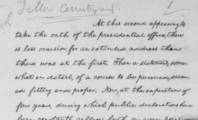 Fellow Countrymen:
At this second appearing to
take the oath of the presidential office, there
is less occasion for an extended address than
there was at the first. Then a statement, some-
what in detail, of a course to be pursued, seemed
fitting and proper. Now, at the expiration of
four years, during which public declarations have
been constantly called